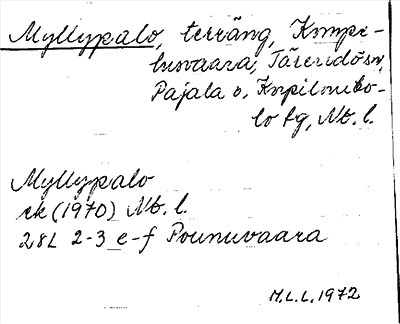 Myllypalo, terräng, Kompe-
lusvaara, Tärendösn,
Pajala o. Korpilombo-
lo tg, Nb. l.
Myllypalo
ek (1970) Nb. l.
28L 2-3 e-f Pounuvaara
M.L.L. 1972